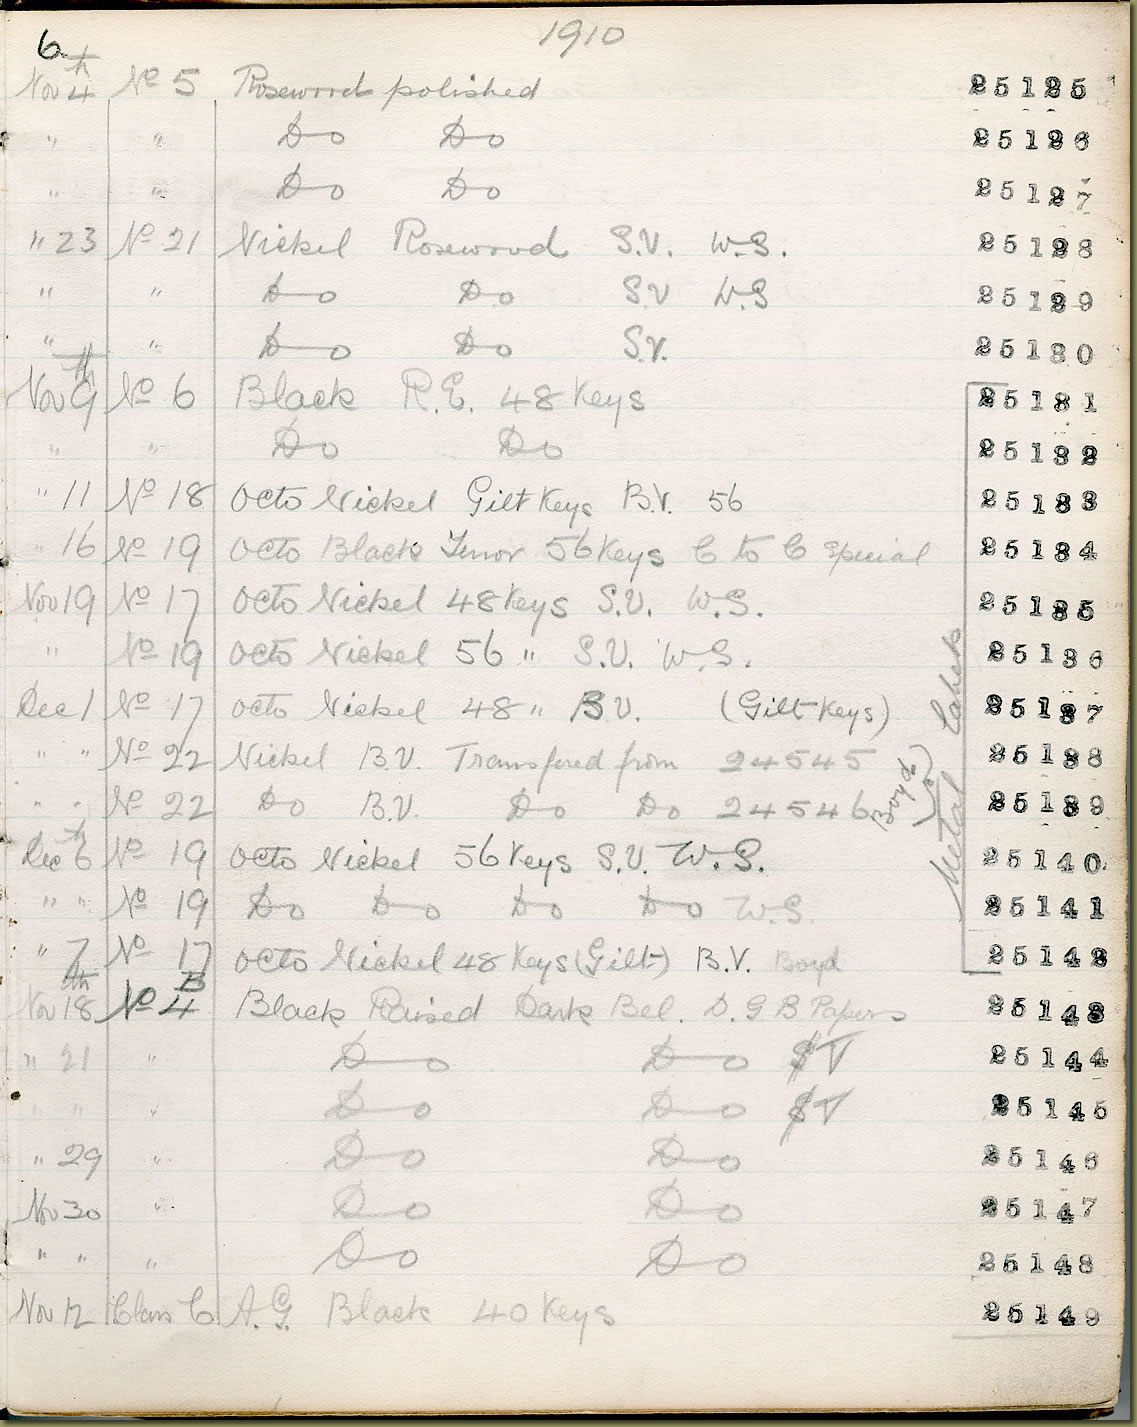 6. 1910
Nov 4th No 5 Rosewood polished 25125
" " Do Do 25126
" " Do Do 25127
" 23 No 21 Nickel Rosewood S.V. W.S. 25128
" " Do Do S.V W.S 25129
" " Do Do S.V. 25130
Nov 9th No 6 Black R.E. 48 Keys 25131
" " Do Do 25132
" 11 No 18 Octo Nickel Gilt Keys B.V. 56 25133
" 16 No 19 Octo Black Tenor 56 Keys C to C Special 25134
Nov 19 No 17 Octo Nickel 48 Keys S.V. W.S. 25135
" No 19 Octo Nickel 56 " S.V. W.S. 25136
Dec 1 No 17 Octo Nickel 48 " B.V. (Gilt Keys) 25137
" " No 22 Nickel B.V. Transfered from 24545 25138
" " No 22 Do B.V. Do Do 24546 25139
Boyd
Metal
Dec 6th No 19 Octo Nickel 56 Keys S.V. W.S. 25140
" " No 19 Do Do Do Do W.S. 25141
" 7 No 17 Octo Nickel 48 Keys (Gilt) B.V. Boyd 25142
Nov 18th No 4 B Black Raised Dark Bel. D.G.B Papers 25143
" 21 " Do Do 25144
" " " Do Do 25145
" 29 " Do Do 25146
Nov 30 " Do Do 25147
" " " Do Do 25148
Nov 12 Class C A.G. Black 40 Keys 25149